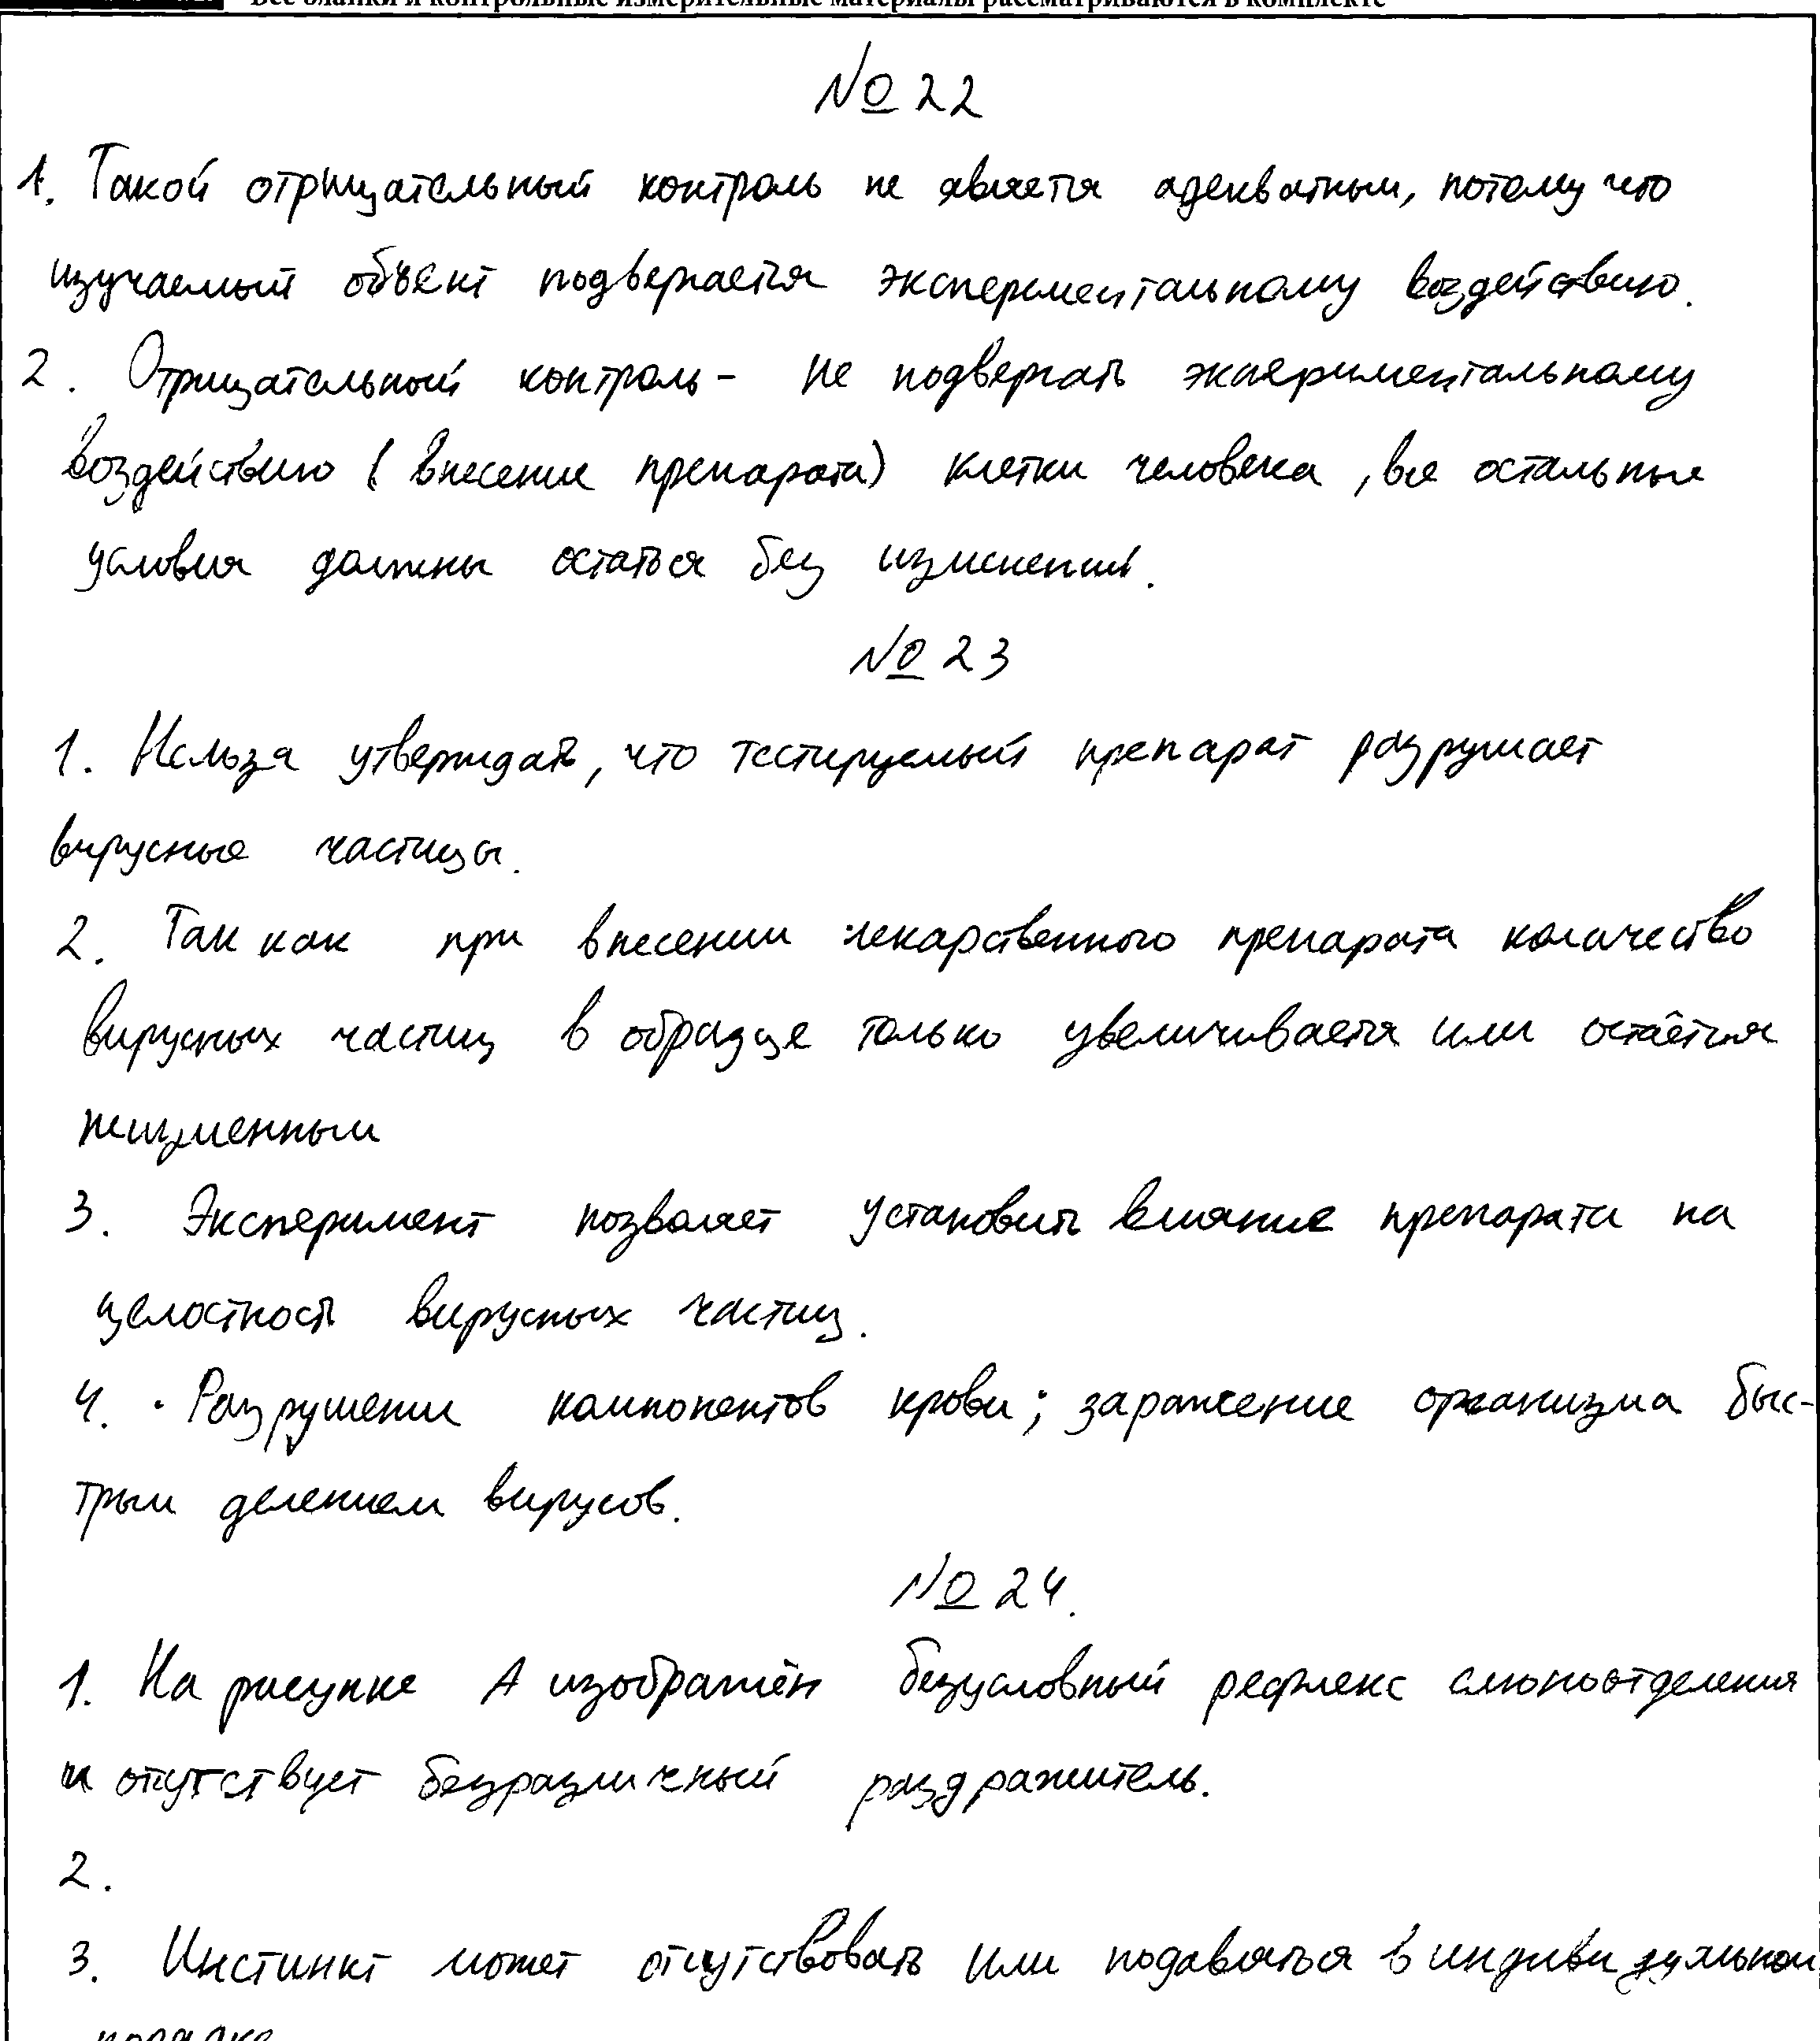 Все бланки и контрольные измерительные материалы рассматриваются в комплекте
№ 22
1. Такой отрицательный контроль не является адекватным, потому что
изучаемый объект подвергается экспериментальному воздействию.
2. Отрицательный контроль - не подвергать экспериментальному
воздействию (внесение препарата) клетки человека, все остальные
условия должны остаться без изменений.
№ 23
1. Нельзя утверждать, что тестируемый препарат разрушает
вирусные частицы.
2. Так как при внесении лекарственного препарата количество
вирусных частиц в образце только увеличивается или остаётся
неизменным
3. Эксперимент позволяет установить влияние препарата на
целостность вирусных частиц.
4. · Разрушении компонентов крови; заражение организма быс-
трым делением вирусов.
№ 24.
1. На рисунке А изображён безусловный рефлекс слюноотделения
и отсутствует безразличный раздражитель.
2.
3. Инстинкт может отсутствовать или подавляться в индивидуальном
порядке